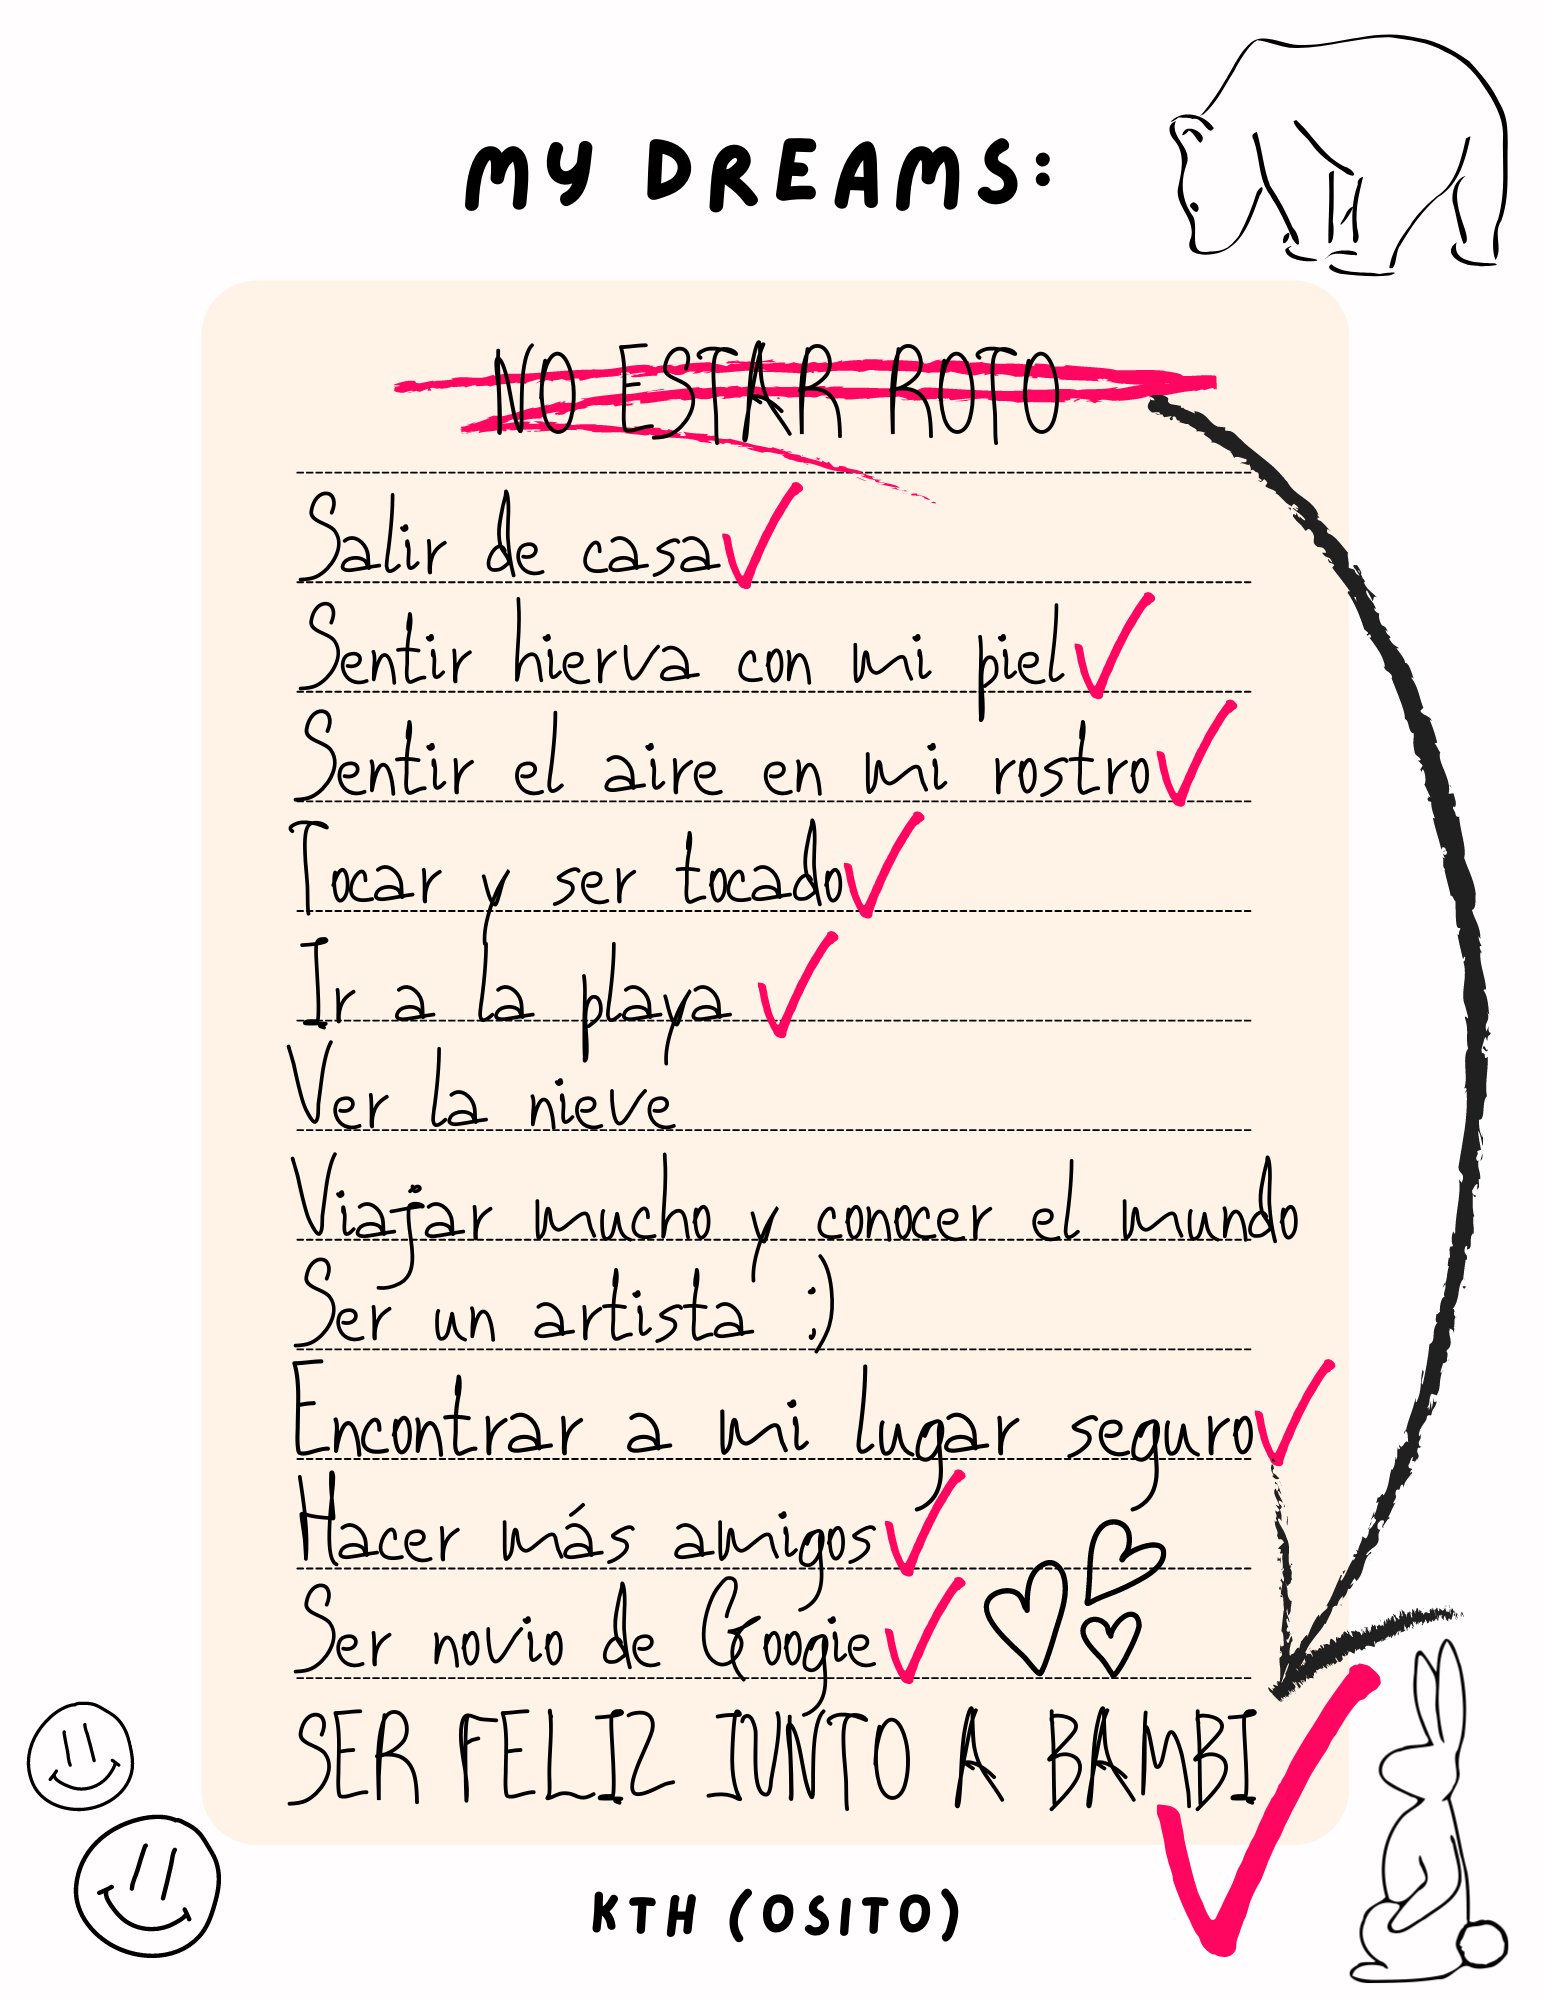 MY DREAMS:
NO ESTAR ROTO
Salir de casa
Sentir hierva con mi piel
Sentir el aire en mi rostro
Tocar y ser tocado
Ir a la playa
Ver la nieve
Viajar mucho y conocer el mundo
Ser un artista :)
Encontrar a mi lugar seguro
Hacer más amigos
Ser novio de Googie
SER FELIZ JUNTO A BAMBI
KTH (OSITO)